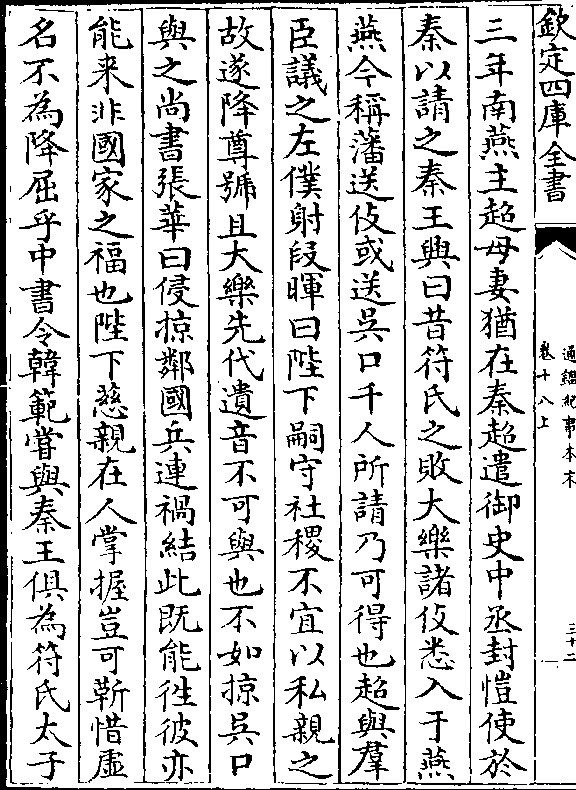 欽定四庫全書
通鑑紀事本末
卷十八上
三十二
三年南燕主超母妻猶在秦超遣御史中丞封愷使於
秦以請之秦王興曰昔符氏之敗大樂諸伎悉入于燕
燕今稱藩送伎或送吳口千人所請乃可得也超與羣
臣議之左僕射段暉曰陛下嗣守社稷不宜以私親之
故遂降尊號且大樂先代遺音不可與也不如掠吳口
與之尚書張華曰侵掠鄰國兵連禍結此既能徃彼亦
能来非國家之福也陛下慈親在人掌握豈可靳惜虛
名不為降屈乎中書令韓範嘗與秦王俱為符氏太子